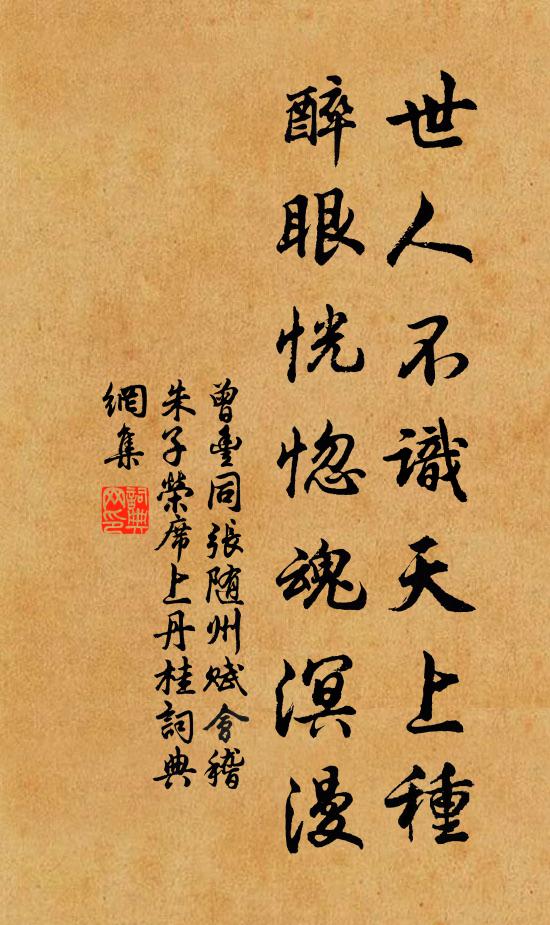 世人不識天上種
醉眼恍惚魂溟漫
曾豐同張隨州賦會稽
朱子榮席上丹桂詞典
網集
詞典
网印